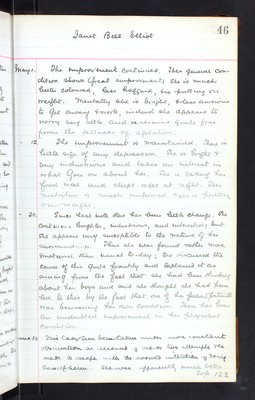 46
Janet Bell Elliot
May 1. The improvement continues. Her general con-
dition shows great improvement, she is much
better coloured, less haggard, & is putting on
weight. Mentally she is bright, & less anxious
to get away & work, indeed she appears to
worry very little and remains quite free
from the attacks of agitation.
- 12. The improvement is maintained. There is
little sign of any depression. She is bright &
very industrious and takes an interest in
what goes on about her. She is taking her
food well and sleeps well at night. Her
nutrition is much improved & she is putting
on weight.
- 20. Since last note there has been little change. She
continues brighter, industrious, and interested; but
she appears very susceptible to the nature of her
surroundings. Thus she was found rather more
emotional than usual to-day; she discussed the
cause of this quite sensibly and explained it as
arising from the fact that she had been thinking
about her boys and said she thought she had been
led to this by the fact that one of her fellow patients
was bemoaning her own condition. There has been
an undoubted improvement in her physical
condition.
This case has been taken under more constant
observation on account of
make & escape with the avowed intention of doing
herself harm. She was apparently much better
To p. 122